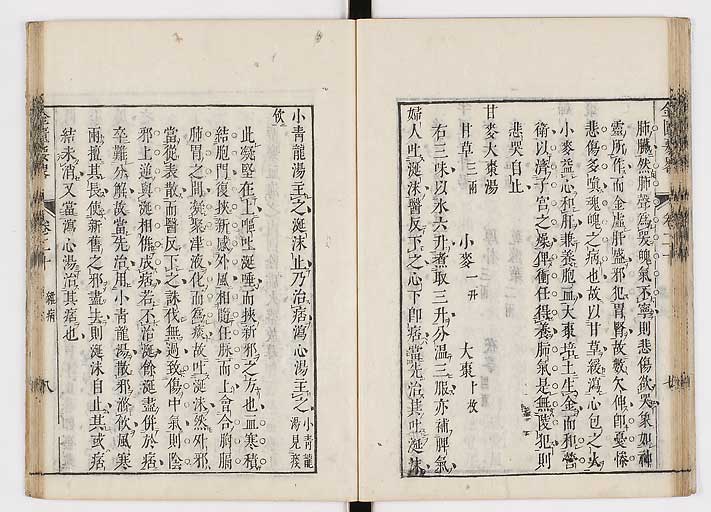 肺臟然肺聲爲哭魄氣不寧則悲傷欲哭象如神
靈所作而金虛肝盛邪犯胃腎故數欠伸卽憂慘
悲傷多嗔魂魄之病也故以甘草緩瀉心包之火
小麥益心和肝兼養胞血大棗培土生金而和營
衛以濟子宮之燥俾衝任得養肺氣是無陵犯則
悲哭自止
甘麥大棗湯
甘草三兩 小麥一升 大棗十枚
右三味以水六升煮取三升分溫三服亦補脾氣
婦人吐涎沫醫反下之心下卽痞當先治其吐涎沫
小青龍湯主之涎沫止乃治痞瀉心湯主之小青龍湯見痰
飲
此凝堅在上嘔吐涎唾而挾新邪之方也血寒積
結胞門復挾新感外風相隨任脉而上會合胸膈
肺胃之間凝聚津液化而爲痰故吐涎沫然外邪
當從表散而醫反下之誅伐無過致傷中氣則陰
邪上逆與涎相搏成痞若不治涎餘涎盡併於痞
卒難分解故當先治用小青龍湯散邪滌飲風寒
兩擅其長使新舊之邪盡去則涎沫自止其或痞
結未消又當瀉心湯治其痞也
金匱要畧 卷二十 雜病 八